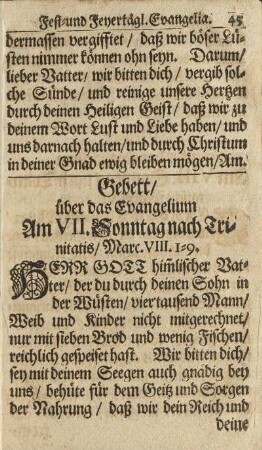 Fest⸗und Feyertägl. Evangelia. 45
dermassen vergifftet / daß wir böser Lü⸗
sten nimmer können ohn seyn. Darum /
lieber Vatter / wir bitten dich / vergib sol⸗
che Sünde / und reinige unsere Hertzen
durch deinen Heiligen Geist / daß wir zu
deinem Wort Lust und Liebe haben / und
uns darnach halten / und durch Christum
in deiner Gnad ewig bleiben mögen / Am.
Gebett /
über das Evangelium
Am VII. Sonntag nach Tri⸗
nitatis / Marc. VIII. 1=9.
HERR GOTT him̃lischer Vat⸗
ter / der du durch deinen Sohn in
der Wüsten / vier tausend Mann /
Weib und Kinder nicht mitgerechnet /
nur mit sieben Brod und wenig Fischen /
reichlich gespeiset hast. Wir bitten dich /
sey mit deinem Seegen auch gnädig bey
uns / behüte für dem Geitz und Sorgen
der Nahrung / daß wir dein Reich und
deine